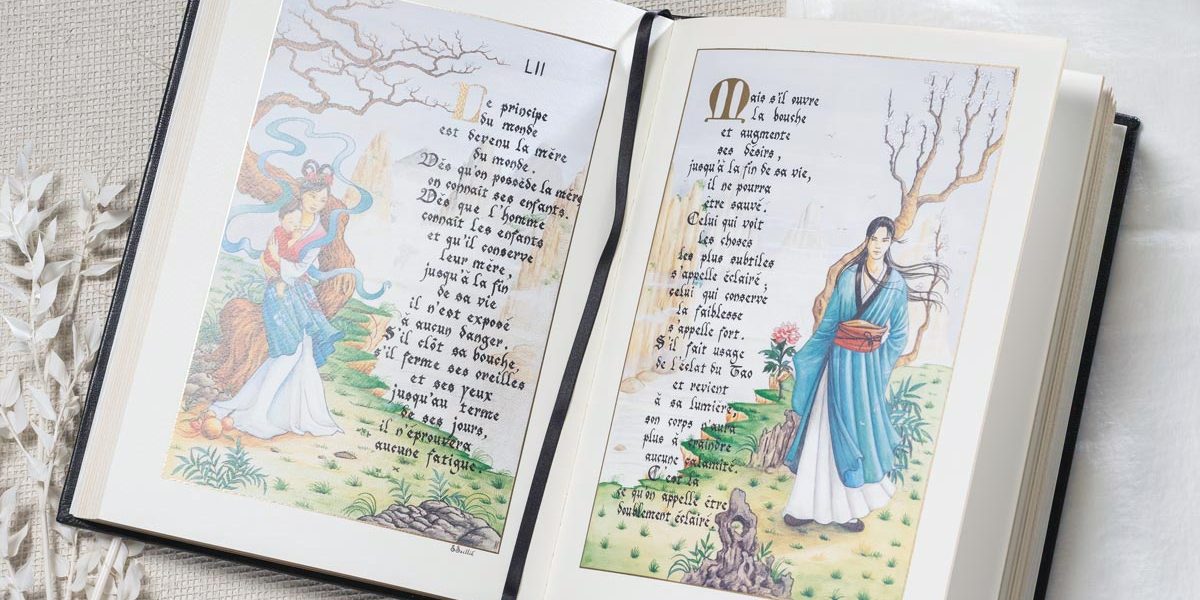 LII
Le principe
du monde
est devenu la mère
du monde.
Dès qu'on possède la mère
on connait ses enfants.
Dès que l'homme
connait les enfants
et qu'il conserve
leur mère,
jusqu'à la fin
de sa vie
il n'est exposé
à aucun danger.
S'il clôt sa bouche,
s'il ferme ses oreilles
et ses yeux
jusqu'au terme
de ses jours,
il n'éprouvera
aucune fatigue.
Mais s'il ouvre
la bouche
et augmente
ses désirs,
jusqu'à la fin de sa vie,
il ne pourra
être sauvé.
Celui qui voit
les choses
les plus subtiles
s'appelle éclairé;
celui qui conserve
la faiblesse
s'appelle fort.
S'il fait usage
de l'éclat du Tao
et revient
à sa lumière
son corps n'aura
plus à craindre
aucune calamité.
C'est là
ce qu'on appelle être
doublement éclairé.